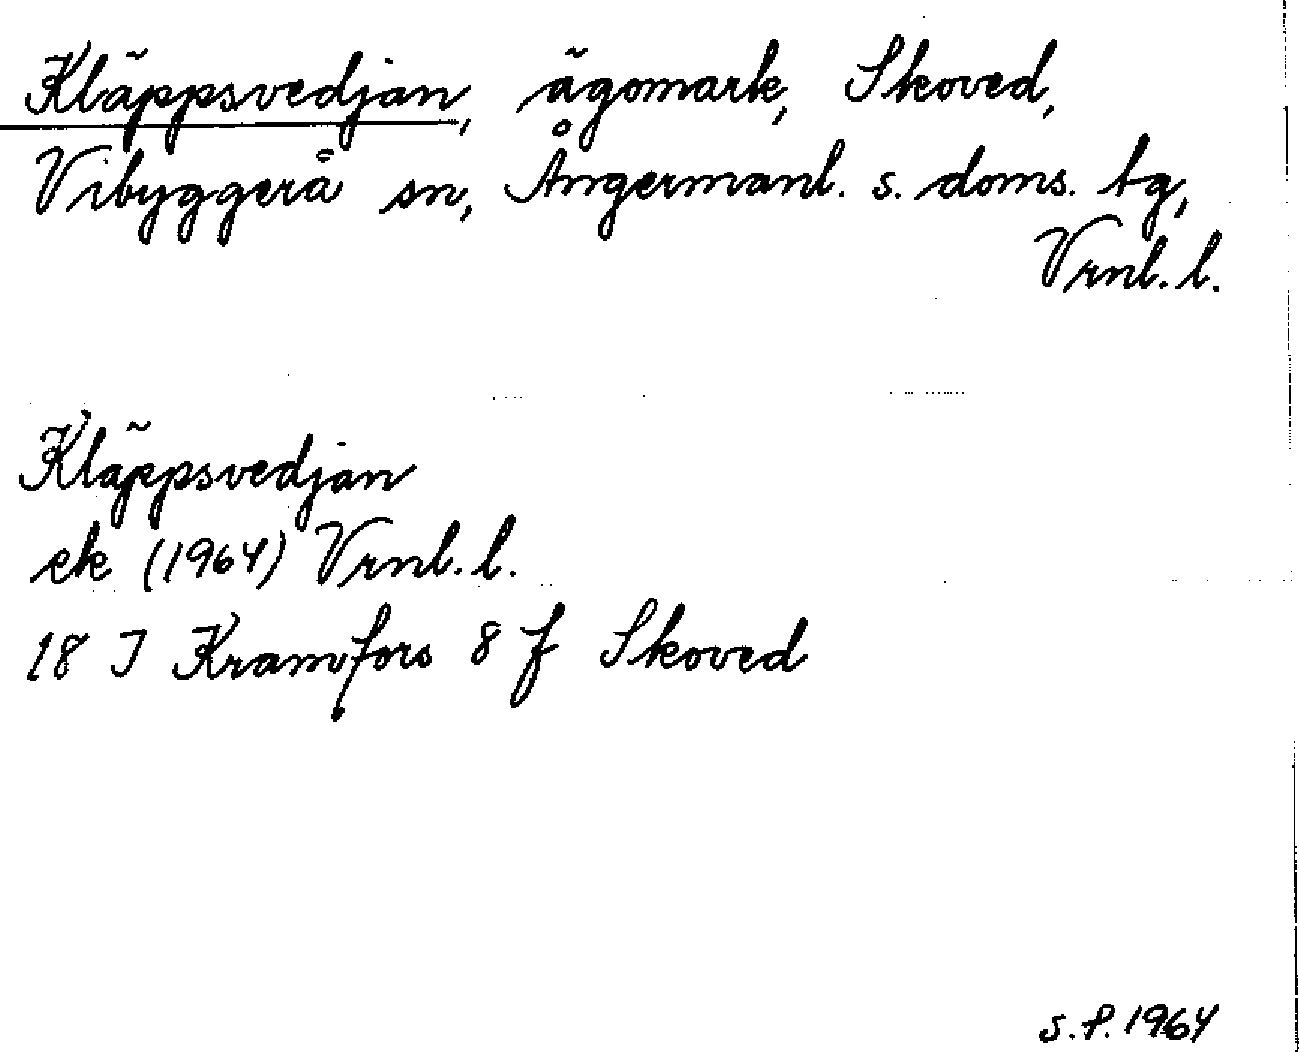 Kläppsvedjan, ägomark, Skoved,
Vibyggerå sn, Ångermanl. s. doms. tg,
Vrnl. l.
Kläppsvedjan
ek (1964) Vrnl. l.
18 I Kramfors 8 f Skoved
s. P. 1964